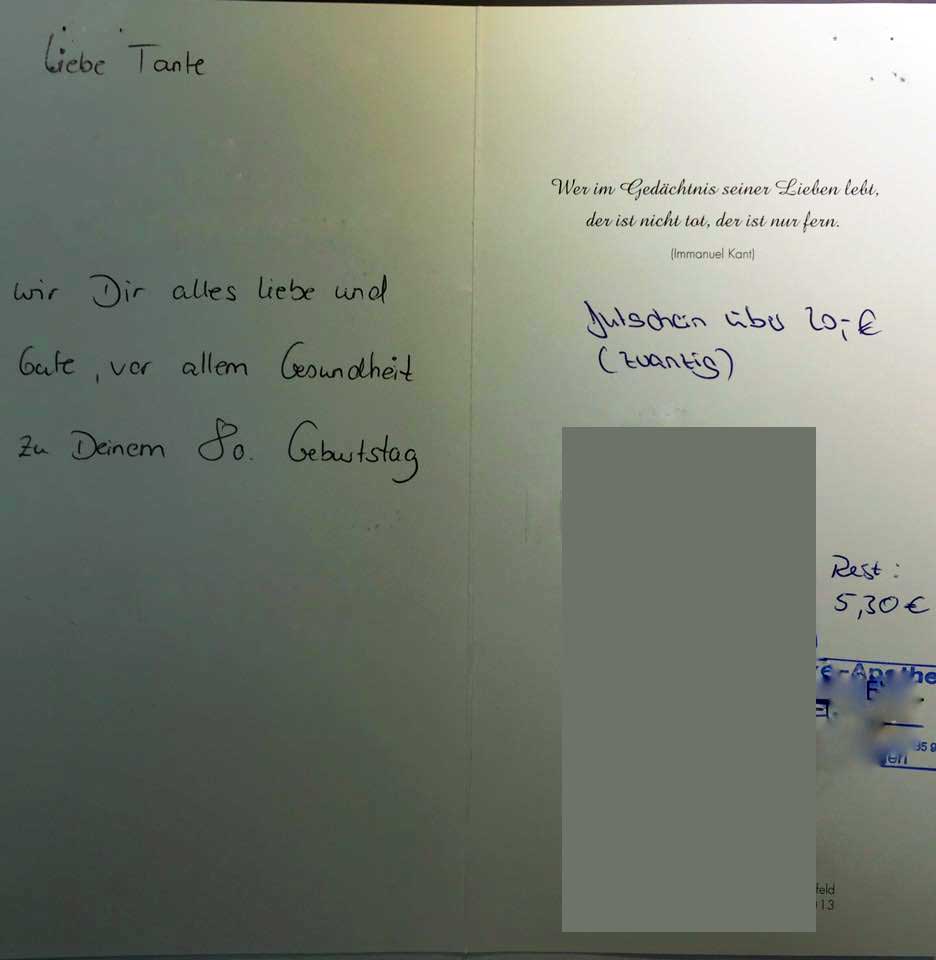 Liebe Tante
wir Dir alles liebe und
Gute, vor allem Gesundheit
zu Deinem 80. Geburtstag
Wer im Gedächtnis seiner Lieben lebt,
der ist nicht tot, der ist nur fern.
(Immanuel Kant)
Gutschein über 20,-€
(zwanzig)
Rest:
5,30€
feld